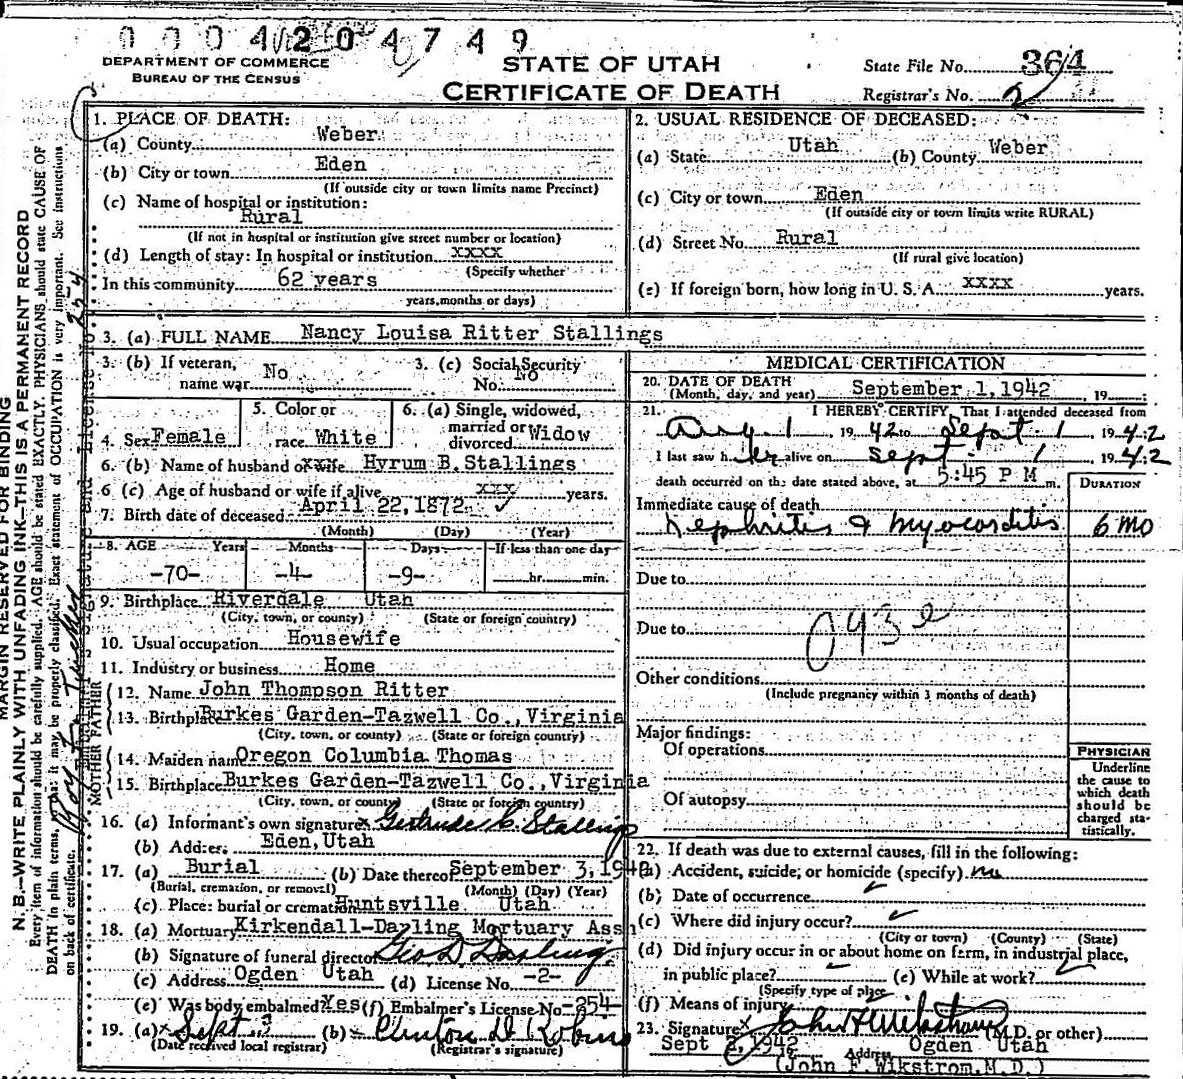 0004204749
DEPARTMENT OF COMMERCE
BUREAU OF THE CENSUS
STATE OF UTAH
CERTIFICATE OF DEATH
State File No. 364
Registrar's No. 2
MARGIN RESERVED FOR BINDING
N. B.—WRITE PLAINLY WITH UNFADING INK—THIS IS A PERMANENT RECORD
Every item of information should be carefully supplied. AGE should be stated EXACTLY. PHYSICIANS should state CAUSE OF
DEATH in plain terms, that it may be properly classified. Exact statement of OCCUPATION is very important. See instructions
on back of certificate.
Signature and License No. 254
1. PLACE OF DEATH:
(a) County Weber
(b) City or town Eden
(If outside city or town limits name Precinct)
(c) Name of hospital or institution:
Rural
(If not in hospital or institution give street number or location)
(d) Length of stay: In hospital or institution xxxx
(Specify whether
In this community 62 years
years, months or days)
2. USUAL RESIDENCE OF DECEASED:
(a) State Utah (b) County Weber
(c) City or town Eden
(If outside city or town limits write RURAL)
(d) Street No. Rural
(If rural give location)
(e) If foreign born, how long in U. S. A. xxxx years.
3. (a) FULL NAME Nancy Louisa Ritter Stallings
3. (b) If veteran, name war No
3. (c) Social Security No. No
4. Sex Female
5. Color or race White
6. (a) Single, widowed, married or divorced Widow
6. (b) Name of husband or wife Hyrum B. Stallings
6 (c) Age of husband or wife if alive xxx years.
7. Birth date of deceased April 22, 1872
(Month) (Day) (Year)
8. AGE Years Months Days If less than one day
-70- -4- -9- hr. min.
9. Birthplace Riverdale Utah
(City, town, or county) (State or foreign country)
10. Usual occupation Housewife
11. Industry or business Home
FATHER
12. Name John Thompson Ritter
13. Birthplace Burkes Garden-Tazwell Co., Virginia
(City, town, or county) (State or foreign country)
MOTHER
14. Maiden name Oregon Columbia Thomas
15. Birthplace Burkes Garden-Tazwell Co., Virginia
(City, town, or county) (State or foreign country)
16. (a) Informant's own signature x Gertrude C. Stallings
(b) Address Eden, Utah
17. (a) Burial (b) Date thereof September 3, 1942
(Burial, cremation, or removal) (Month) (Day) (Year)
(c) Place: burial or cremation Huntsville Utah
18. (a) Mortuary Kirkendall-Darling Mortuary Assn
(b) Signature of funeral director Geo. D. Darling
(c) Address Ogden Utah (d) License No. -2-
(e) Was body embalmed? Yes (f) Embalmer's License No. -254-
19. (a) x Sept 3 (b) x Clinton D
(Date received local registrar) (Registrar's signature)
MEDICAL CERTIFICATION
20. DATE OF DEATH
(Month, day, and year) September 1, 1942, 19
21. I HEREBY CERTIFY, That I attended deceased from
Aug. 1 1942 to Sept. 1, 1942
I last saw her alive on Sept. 1 1942
death occurred on the date stated above, at 5:45 P M m.
DURATION
Immediate cause of death
Nephritis & Myocarditis 6 mo
Due to
093e
Due to
Other conditions
(Include pregnancy within 3 months of death)
Major findings:
Of operations
Of autopsy
PHYSICIAN
Underline
the cause to
which death
should be
charged sta-
tistically.
22. If death was due to external causes, fill in the following:
(a) Accident, suicide, or homicide (specify) no
(b) Date of occurrence
(c) Where did injury occur?
(City or town) (County) (State)
(d) Did injury occur in or about home on farm, in industrial place,
in public place? (e) While at work?
(Specify type of place
(f) Means of injury
23. Signature x John F Wikstrom (M.D. or other)
Sept 2, 1942 19 Address Ogden Utah
(John F. Wikstrom, M.D.)